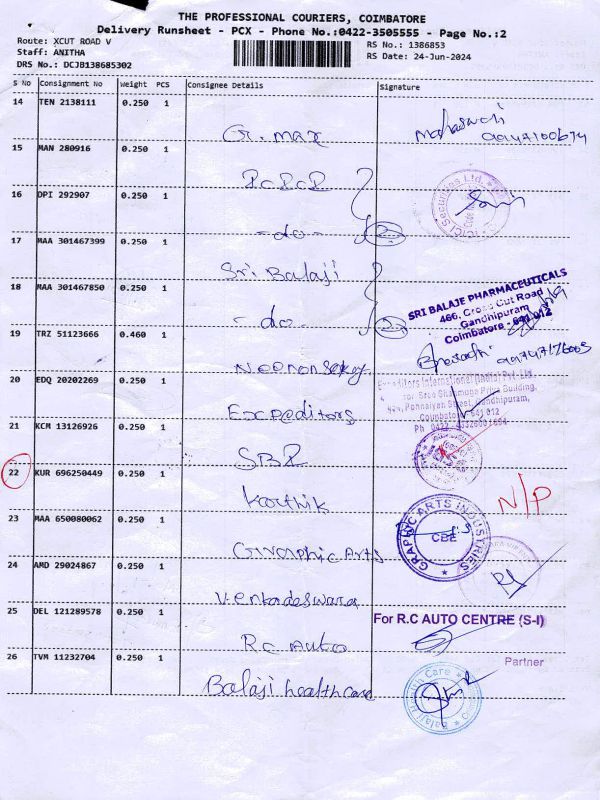 THE PROFESSIONAL COURIERS, COIMBATORE
Delivery Runsheet - PCX - Phone No.:0422-3505555 - Page No.:2
Route: XCUT ROAD V
RS No.: 1386853
Staff: ANITHA
RS Date: 24-Jun-2024
DRS No.: DCJB138685302
S No Consignment No Weight PCS Consignee Details Signature
14 TEN 2138111 0.250 1
Gr. max
15 MAN 280916 0.250 1
16 DPI 292907 0.250 1
ICICI Securities Ltd.
- do -
17 MAA 301467399 0.250 1
Sri Balaji
18 MAA 301467850 0.250 1
- do -
SRI BALAJE PHARMACEUTICALS
466, Cross Cut Road
Gandhipuram
Coimbatore - 641 012
19 TRZ 51123666 0.460 1
20 EDQ 20202269 0.250 1
Expeditors
Expeditors International (India) Pvt. Ltd.
Ponnaiyan Street, Gandhipuram,
Coimbatore - 641 012
21 KCM 13126926 0.250 1
22 KUR 696250449 0.250 1
Karthik
N/P
23 MAA 650080062 0.250 1
Graphic Arts
GRAPHIC ARTS INDUSTRIES
CBE
24 AMD 29024867 0.250 1
Venkadeswara
25 DEL 121289578 0.250 1
R.C Auto
For R.C AUTO CENTRE (S-I)
Partner
26 TVM 11232704 0.250 1
Balaji healthcare
Balaji Health Care